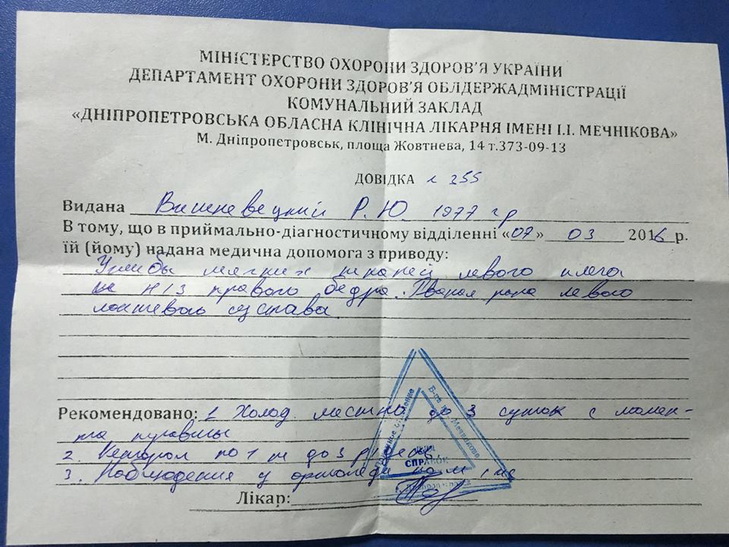 МІНІСТЕРСТВО ОХОРОНИ ЗДОРОВ'Я УКРАЇНИ
ДЕПАРТАМЕНТ ОХОРОНИ ЗДОРОВ'Я ОБЛДЕРЖАДМІНІСТРАЦІЇ
КОМУНАЛЬНИЙ ЗАКЛАД
«ДНІПРОПЕТРОВСЬКА ОБЛАСНА КЛІНІЧНА ЛІКАРНЯ ІМЕНІ І.І. МЕЧНІКОВА»
М. Дніпропетровськ, площа Жовтнева, 14 т.373-09-13
ДОВІДКА 255
Видана Вишневецкий Р.Ю 1977 гр
В тому, що в приймально-діагностичному відділенні «07» 03 2016 р.
їй (йому) надана медична допомога з приводу:
Ушибы мягких тканей левого плеча
правого бедра. Рваная рана левого
локтевого сустава
Рекомендовано: 1 Холод местно до 3 суток с момен-
та травмы
2. Кеторол по 1 до 3 р
3. Наблюдение у ортопеда
Лікар:
СПРАВОК